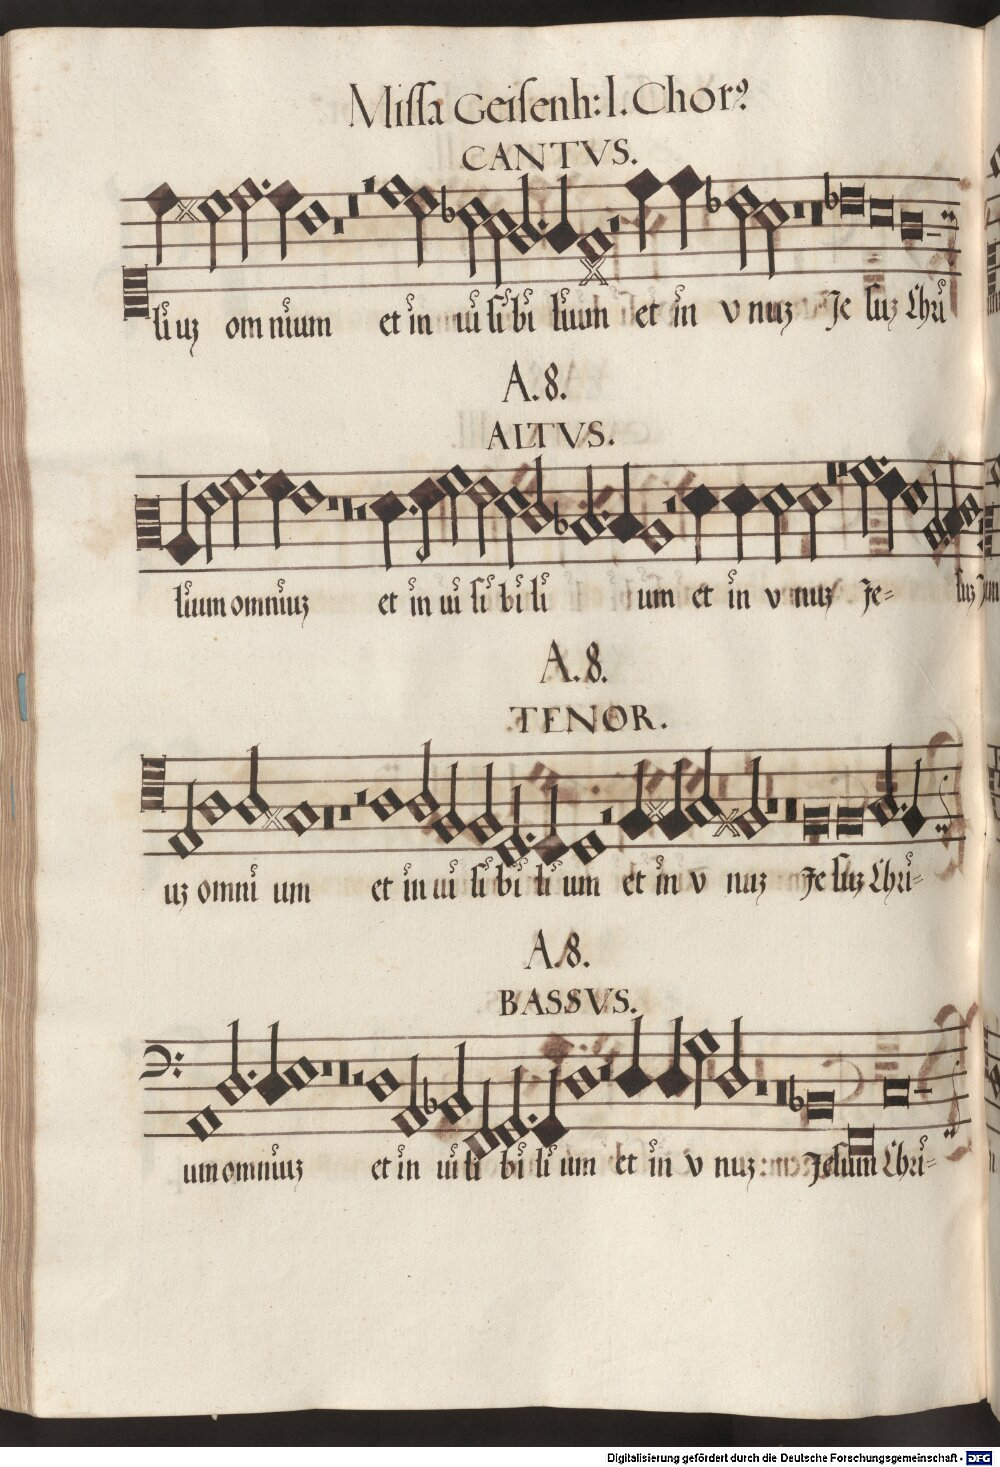 Missa Geisenh: I. Chor9
CANTVS.
liuz omnium et in uisibilium et in vnuz Jesuz Chri
A. 8.
ALTVS.
lium omniuz et in uisibili um et in vnuz Je= suz
A. 8.
TENOR.
uz omni um et in uisibilium et in v nuz Jesuz Chri=
A. 8.
BASSVS.
um omniuz et in uisibilium et in v nuz: Jesum Chri=
Digitalisierung gefördert durch die Deutsche Forschungsgemeinschaft - DFG